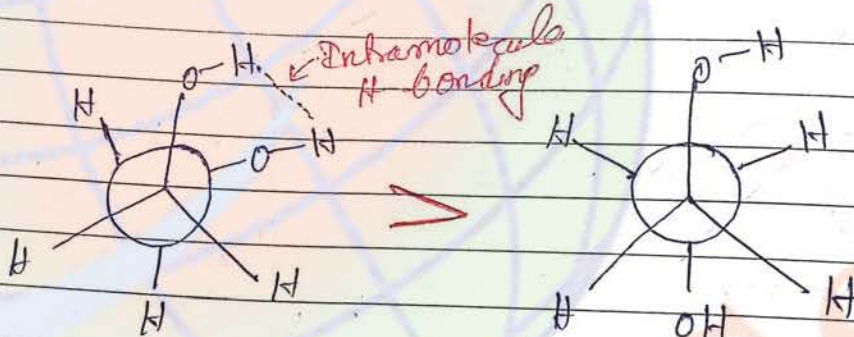 Intramolecula
H bonding
O-H
H
O-H
H
H
H
>
O-H
H
H
H
OH
H